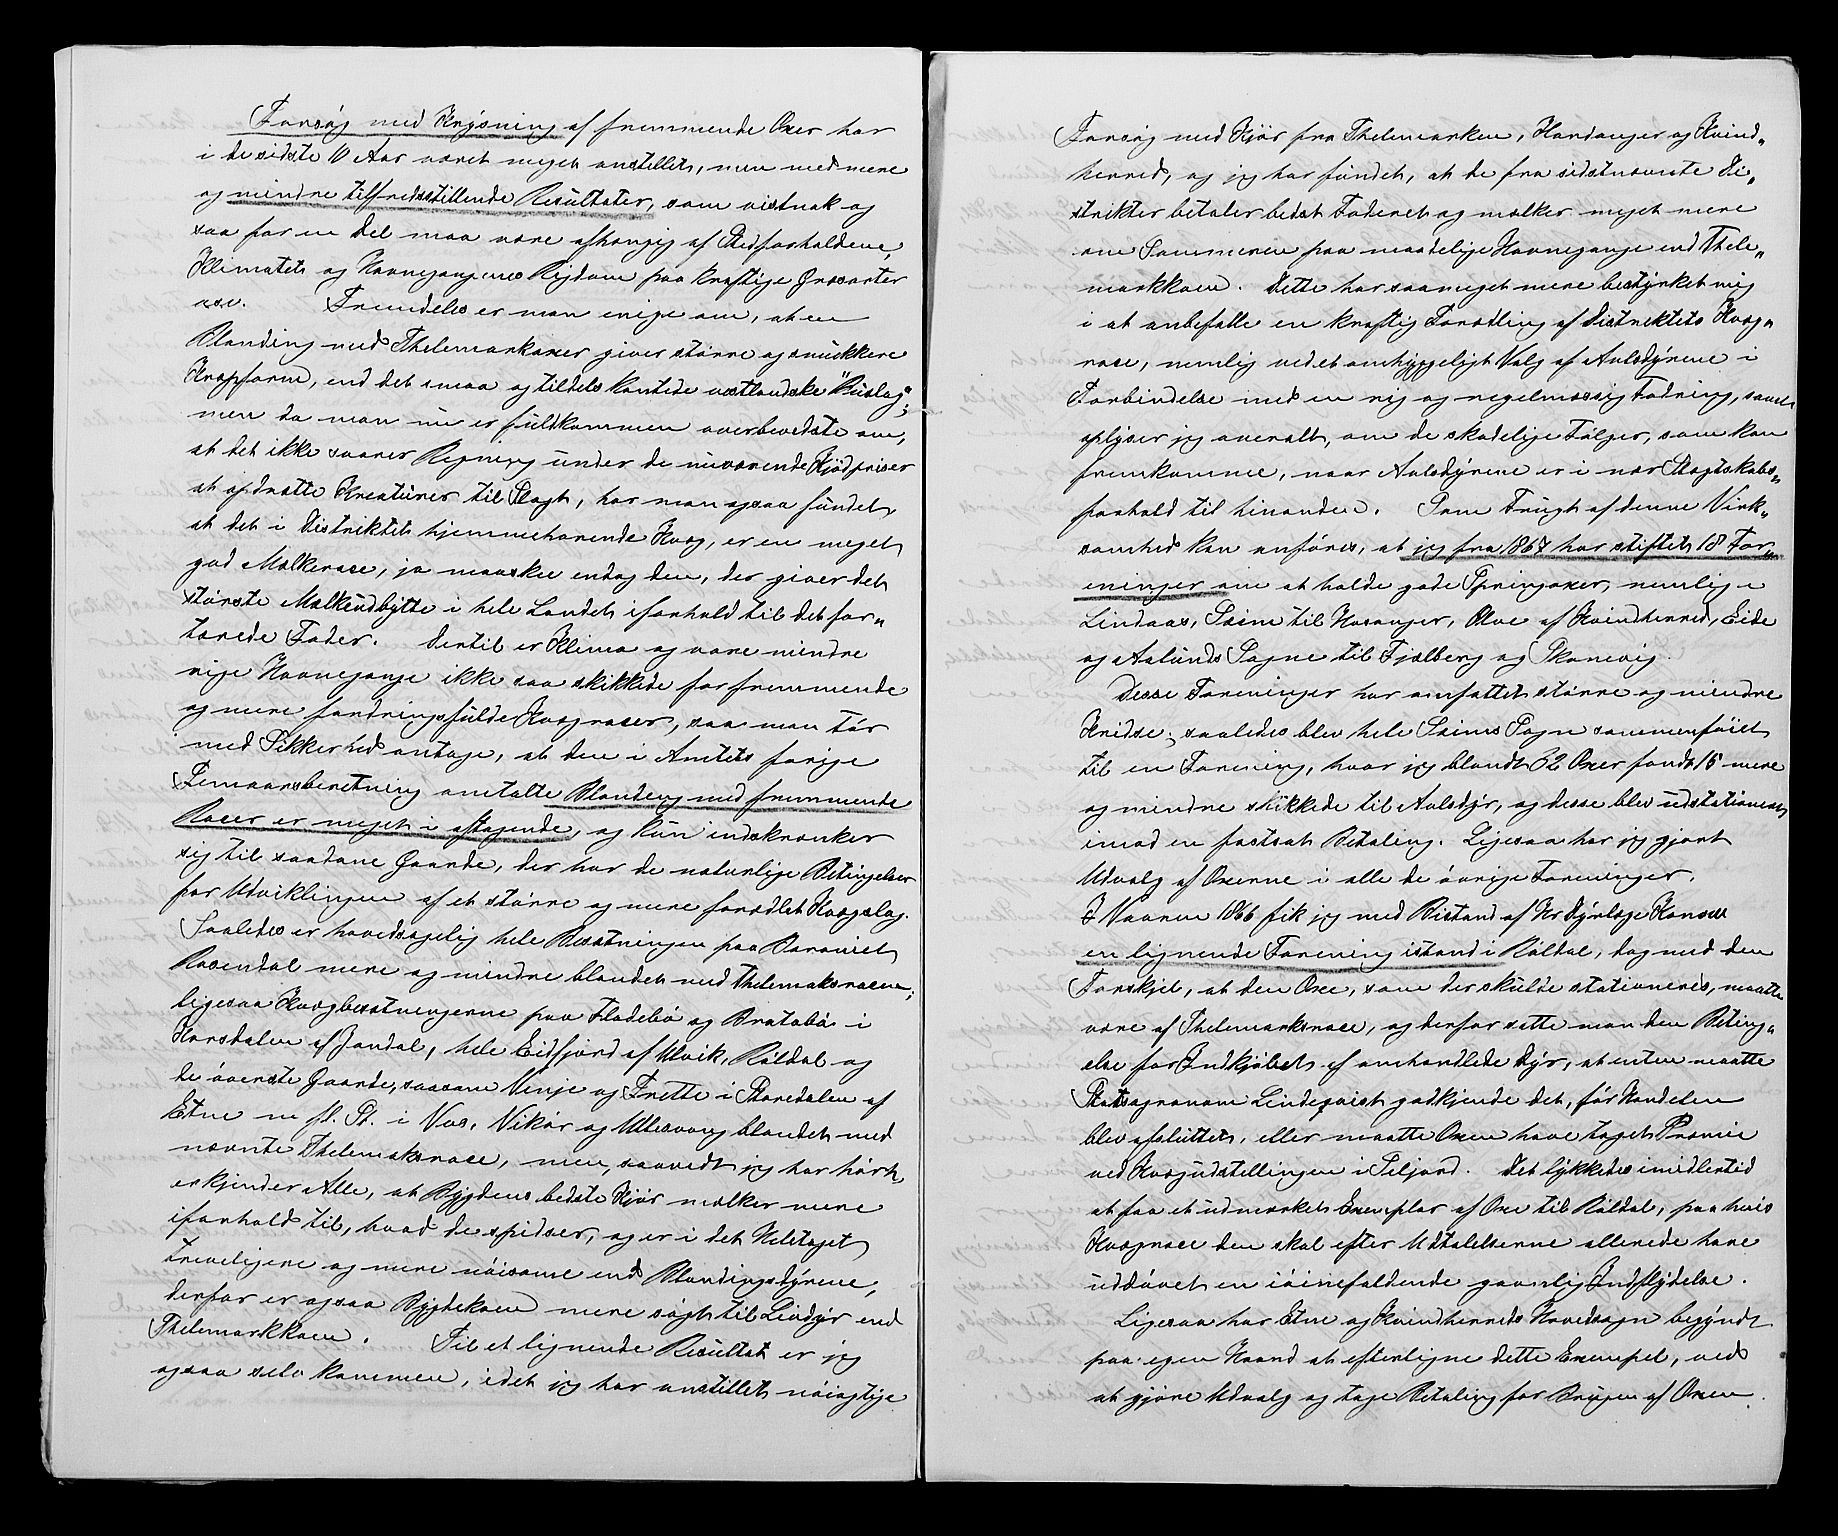 Forsøg med Krysning af fremmende Oxer har
i de sidste 10 Aar været meget anstillet, men med mere
og mindre tilfredsstillende Resultater, som vistnok og
saa for en Del maa være afhængig af Stedforholdene,
Klimatet og Havnegangenes Rigdom paa kraftige Græsarter
osv. Fremdeles er man enige om, at en
Blanding med Thelemarkoxer giver større og smukkere
Kropform, end det smaa og tildels kantede vestlandske "Buslag";
men da man nu er fuldkommen overbeviste om,
at det ikke svarer Regning under de nuværende Kjødpriser
at opdrætte Kreaturer til Slagt, har man ogsaa fundet,
at det i Distriktet hjemmehørende Kvæg, er en meget
god Melkerace, ja maaskee endog den, der giver det
største Melkeudbytte i hele Landet i forhold til det for„
tærede Foder. Dertil er Klima og vore mindre
rige Havnegange ikke saa skikkede for fremmende
og mere fordringsfulde Kvægracer, saa man tør
med Sikkerhed antage, at den i Amtets forige
Femaarsberetning omtalte Blanding med fremmende
Racer er meget i aftagende, og kun indskrænker
sig til saadane Gaarde, der har de naturlige Betingelser
for Udviklingen af et større og mere forædlet Kvægslag.
Saaledes er hovedsagelig hele Besætningen paa Baroniet
Rosendal mere og mindre blandet med Thelemaksracen,
ligesaa Kvægbesætningerne paa Fladebø og Bratabø i
Korsdalen af Jondal, hele Eidfjord af Ulvik, Røldal og
de øverste Gaarde, saasom Vinje og Frette i Stordalen af
Etne m fl. St. i Vos, Vikør og Ullensvang blandet med
nævnte Thelemaksrace, men, saavidt jeg har hørt,
erkjender Alle, at Bygdens bedste Kjør melker mere
iforhold til, hvad de spidser, og er i det Heletaget
trevligere og mere nøisome end Blandingsdyrene,
derfor er ogsaa Bygdekoen mere søgt til Livdyr end
Thelemarkkoen. Til et lignende Resultat er jeg
ogsaa selv kommen, idet jeg har anstillet nøiagtige
Forsøg med Kjør fra Thelemarken, Hardanger og Kvind„
herred, og jeg har fundet, at de fra sidstnævnte Di„
strikter betaler bedst Foderet og melker meget mere
om Sommeren paa maadelige Havnegange end Thele„
markkoen. Dette har saameget mere bestyrket mig
i at anbefalle en kraftig Forædling af Distriktets Kvæg„
race, nemlig ved et omhyggeligt Valg af Avlsdyrene i
Forbindelse med en rig og regelmæssig Fodring, samt
oplyser jeg overalt, om de skadelige Følger, som kan
fremkomme, naar Avlsdyrene er i nær Slægtskabs„
forhold til hinanden. Som Frugt af denne Virk„
somhed kan anføres, at jeg fra 1867 har stiftet 18 For„
eninger om at holde gode Springoxer, nemlig i
Lindaas, Sæim til Hosanger, Ølve af Kvindherred, Eide
og Aalunds Sogne til Fjelberg og Skonevig.
Disse Foreninger har omfattet større og mindre
Kridse; saaledes blev hele Sæims Sogn sammenføiet
til en Forening, hvor jeg blandt 32 Oxer fandt 15 mere
og mindre skikkede til Avlsdyr, og disse blev udstationeret
imod en fastsat Betaling. Ligesaa har jeg gjort
Udvalg af Oxerne i alle de øvrige Foreninger.
I Vaaren 1866 fik jeg med Bistand af Hr Dyrlæge Hansen
en lignende Forening istand i Røldal, dog med den
Forskjel, at den Oxe, som der skulde stationeres, maatte
være af Thelemarksrace, og derfor satte man den Beting„
else for Indkjøbet af omhandlede Dyr, at enten maatte
Statsagronom Lindeqvist godkjende det, før Handelen
blev afsluttet, eller maatte Oxen have taget Præmie
ved Kvægudstillingen i Seljord. Det lykkedes imidlertid
at faa et udmerket Exemplar af Oxe til Røldal, paa hvis
Kvægrace den skal efter Udtalelserne allerede have
uddøvet en iøinefaldende gavnlig Indflydelse.
Ligesaa har Etne og Kvindherreds Hovedsogn begyndt
paa egen Haand at efterligne dette Exempel, ved
at gjøre Udvalg og tage Betaling for Brugen af Oxen.